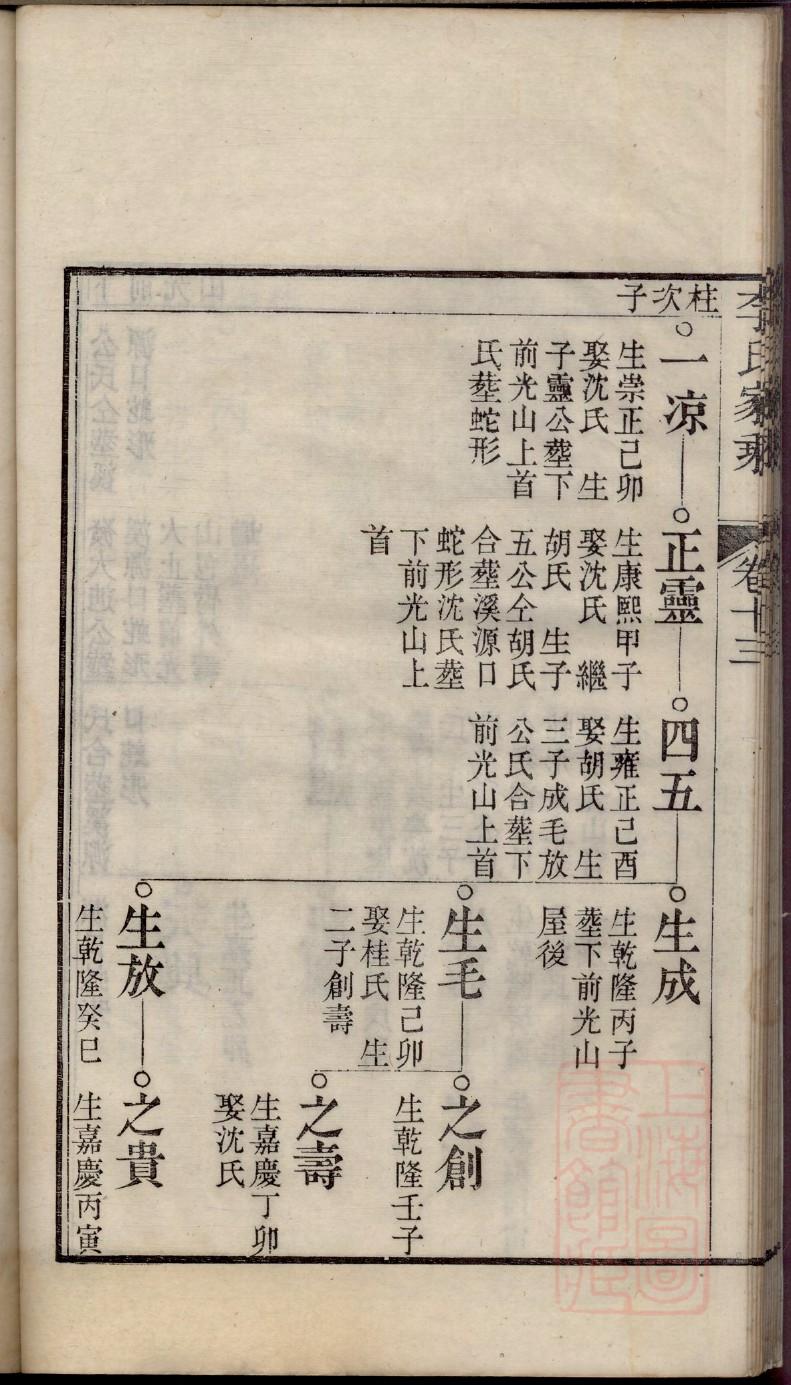 李氏家乘
卷十三
柱次子
一凉
生崇正己卯
娶沈氏 生
子靈公塟下
前光山上首
氏塟蛇形
正靈
生康熙甲子
娶沈氏 繼
胡氏 生子
五公仝胡氏
合塟溪源口
蛇形沈氏塟
下前光山上
首
四五
生雍正己酉
娶胡氏 生
三子成毛放
公氏合塟下
前光山上首
生成
生乾隆丙子
塟下前光山
屋後
生毛
生乾隆己卯
娶桂氏 生
二子創壽
生放
生乾隆癸巳
之創
生乾隆壬子
之壽
生嘉慶丁卯
娶沈氏
之貴
生嘉慶丙寅
上海圖書館藏